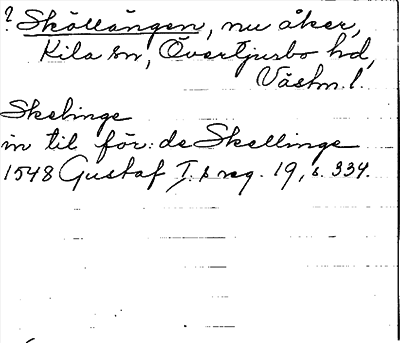 ? Sköllängen, nu åker,
Kila sn, Övertjurbo hd,
Västm. l.
Skelinge
in til för: de Skellinge
1548 Gustaf I:s reg. 19, s. 334.